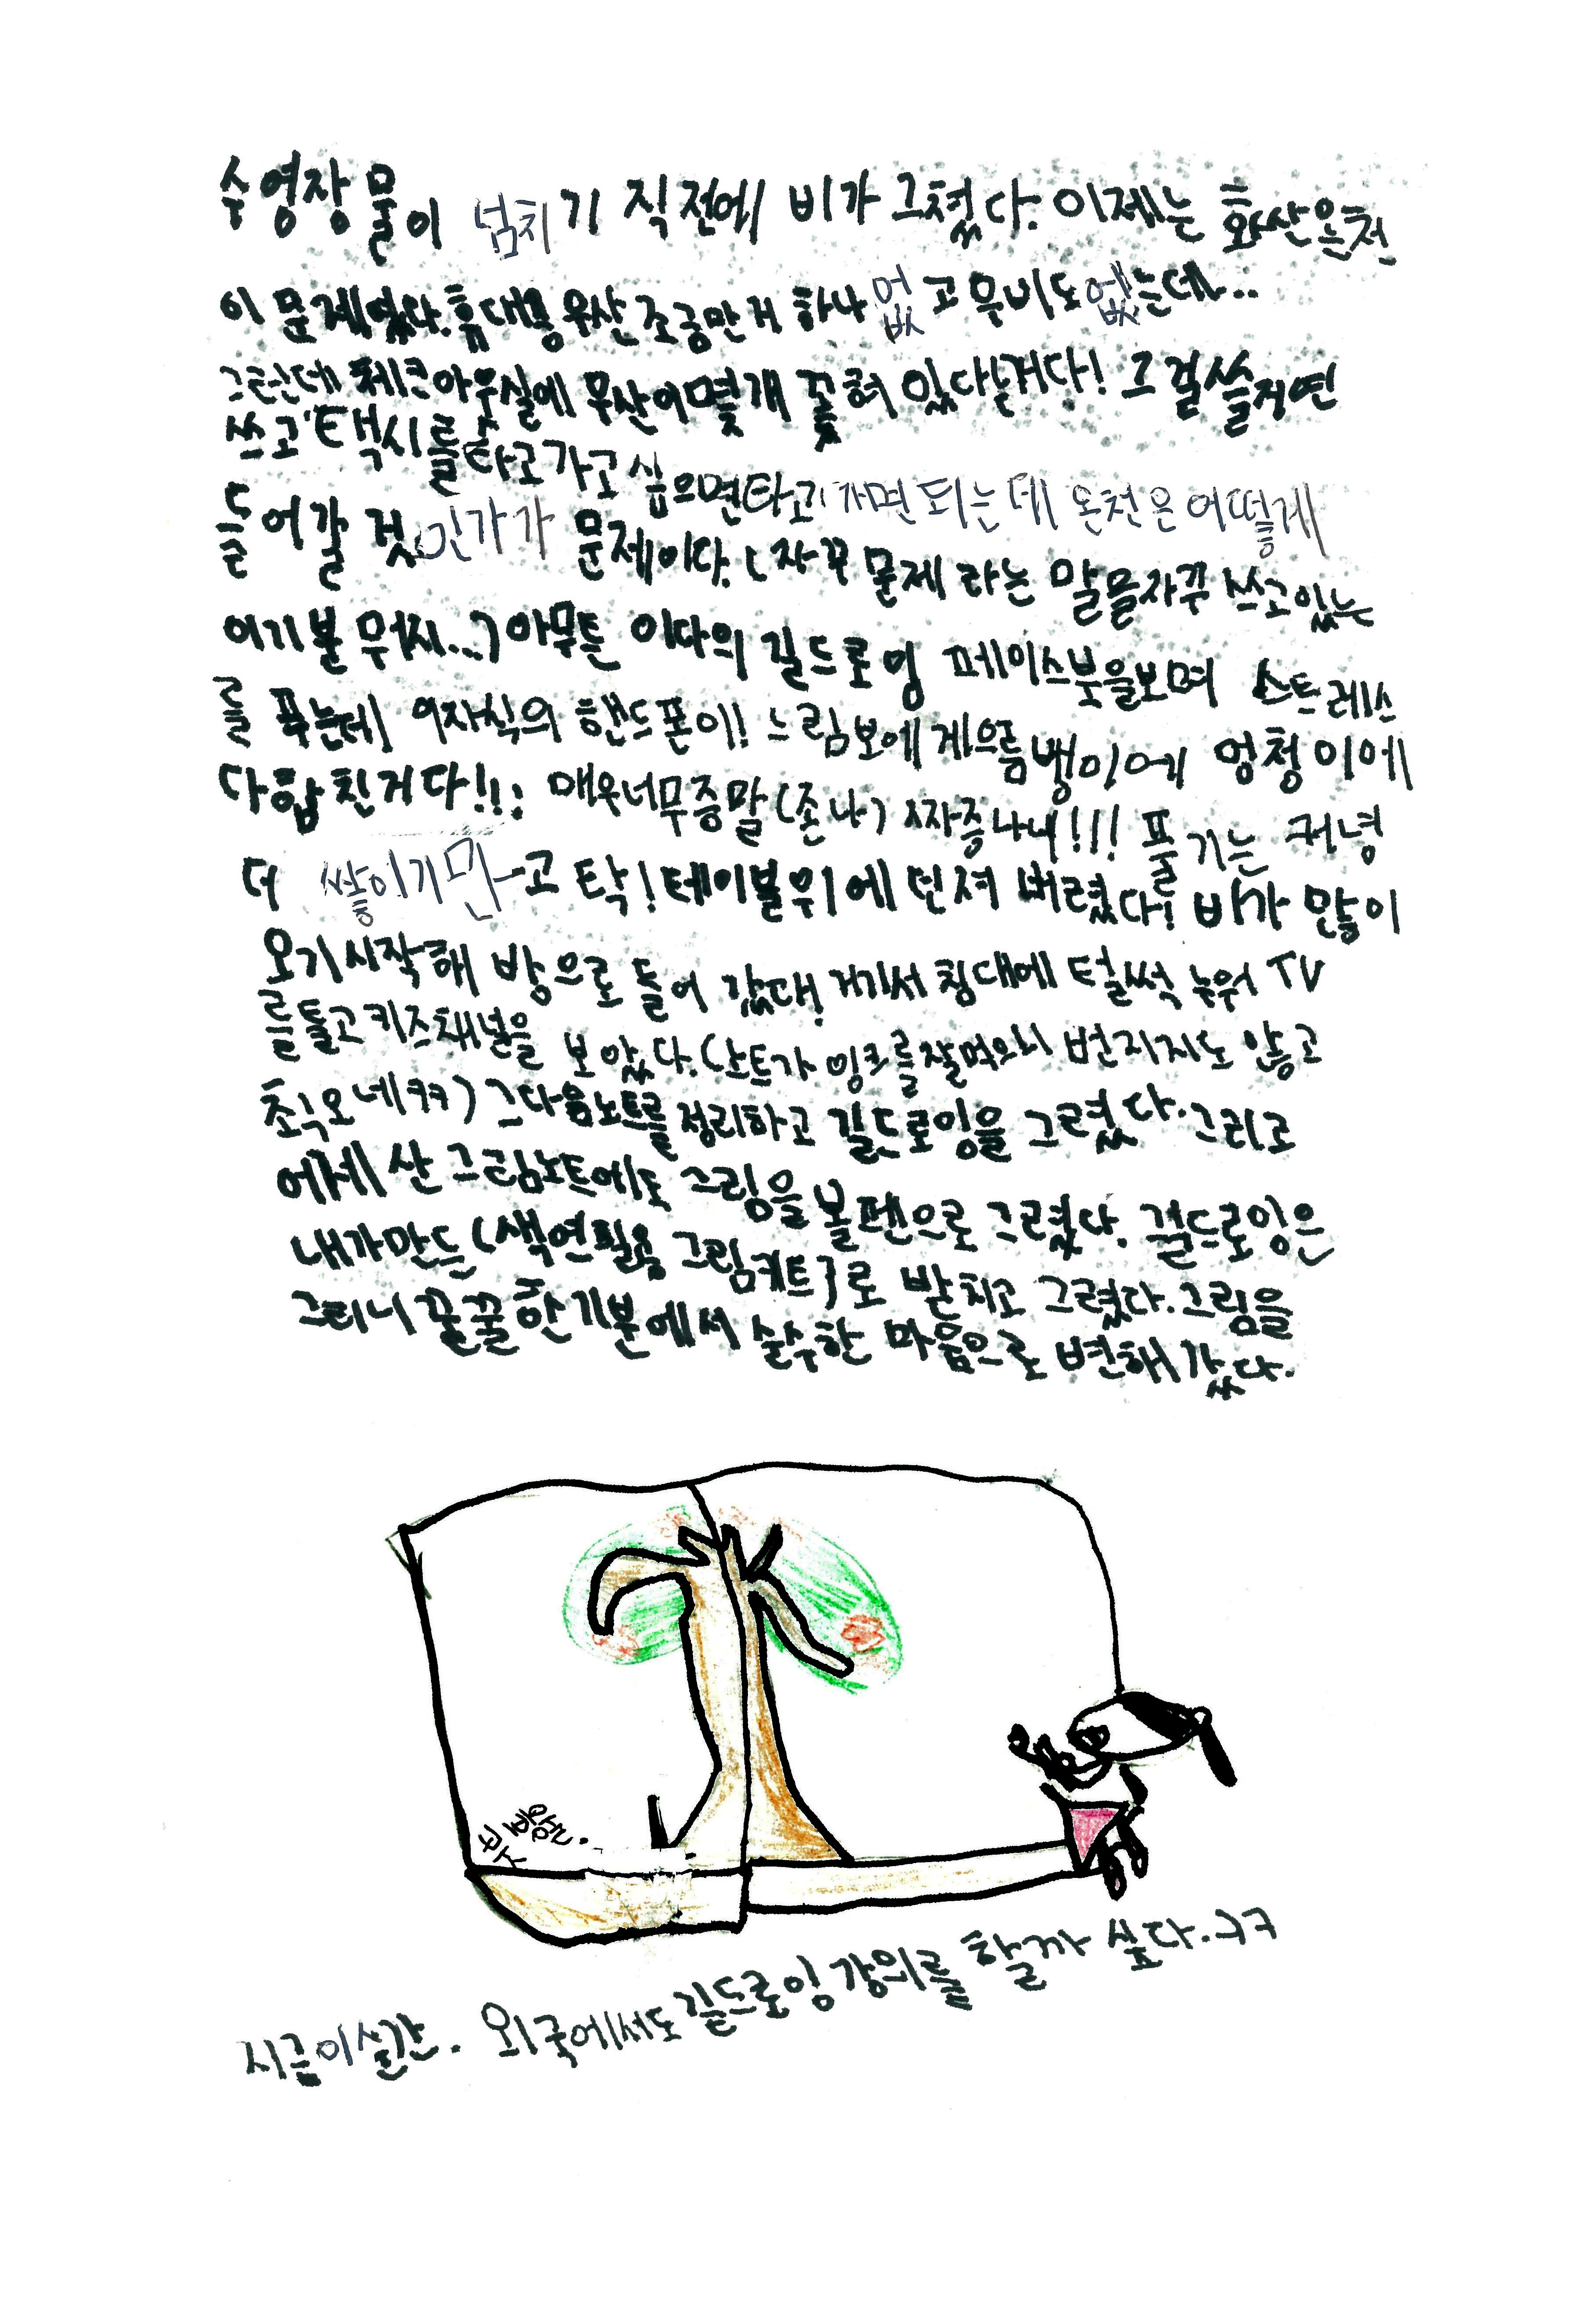 수영장 물이 넘치기 직전에 비가 그쳤다. 이제는 화산온천
이 문제였다. 휴대용 우산 조금만거 하나 없고 우비도 없는데..
그런데 체크아웃실에 우산이 몇개 꽃혀 있다는거다! 그걸 쓸지면
쓰고 택시를 타고가고 싶으면 타고 가면 되는데 온천은 어떻게
들어갈 것인가가 문제이다. (자꾸 문제 라는 말을 자꾸 쓰고있는
이기분 뭐찌...) 아무튼 이다의 길드로잉 페이스북을보며 스트레스
를 푸는데 이자식의 핸드폰이! 느림보에 게으름뱅이에 멍청이에
다합친거다!!! 매우너무증말(존나) 짜증나네!!! 풀기는 커녕
더 쌓이기만고 탁! 테이블위에 던져 버렸다! 비가 많이
오기시작해 방으로 들어 갔대! 거기서 침대에 털썩 누워 TV
를틀고 키즈채널을 보았다. (노트가 잉크를잘먹으니 번지지도 않고
최고네ㅋㅋ) 그다음노트를 정리하고 길드로잉을 그렸다. 그리고
어제 산 그림노트에도 그림을 볼펜으로 그렸다. 길드로잉은
내가만든 (색연필용 그림키트)로 받치고 그렸다. 그림을
그리니 꿀꿀한기분에서 순수한 마음으로 변해갔다.
지금이순간. 외국에서도 길드로잉강의를 할까 싶다. ㅋㅋ